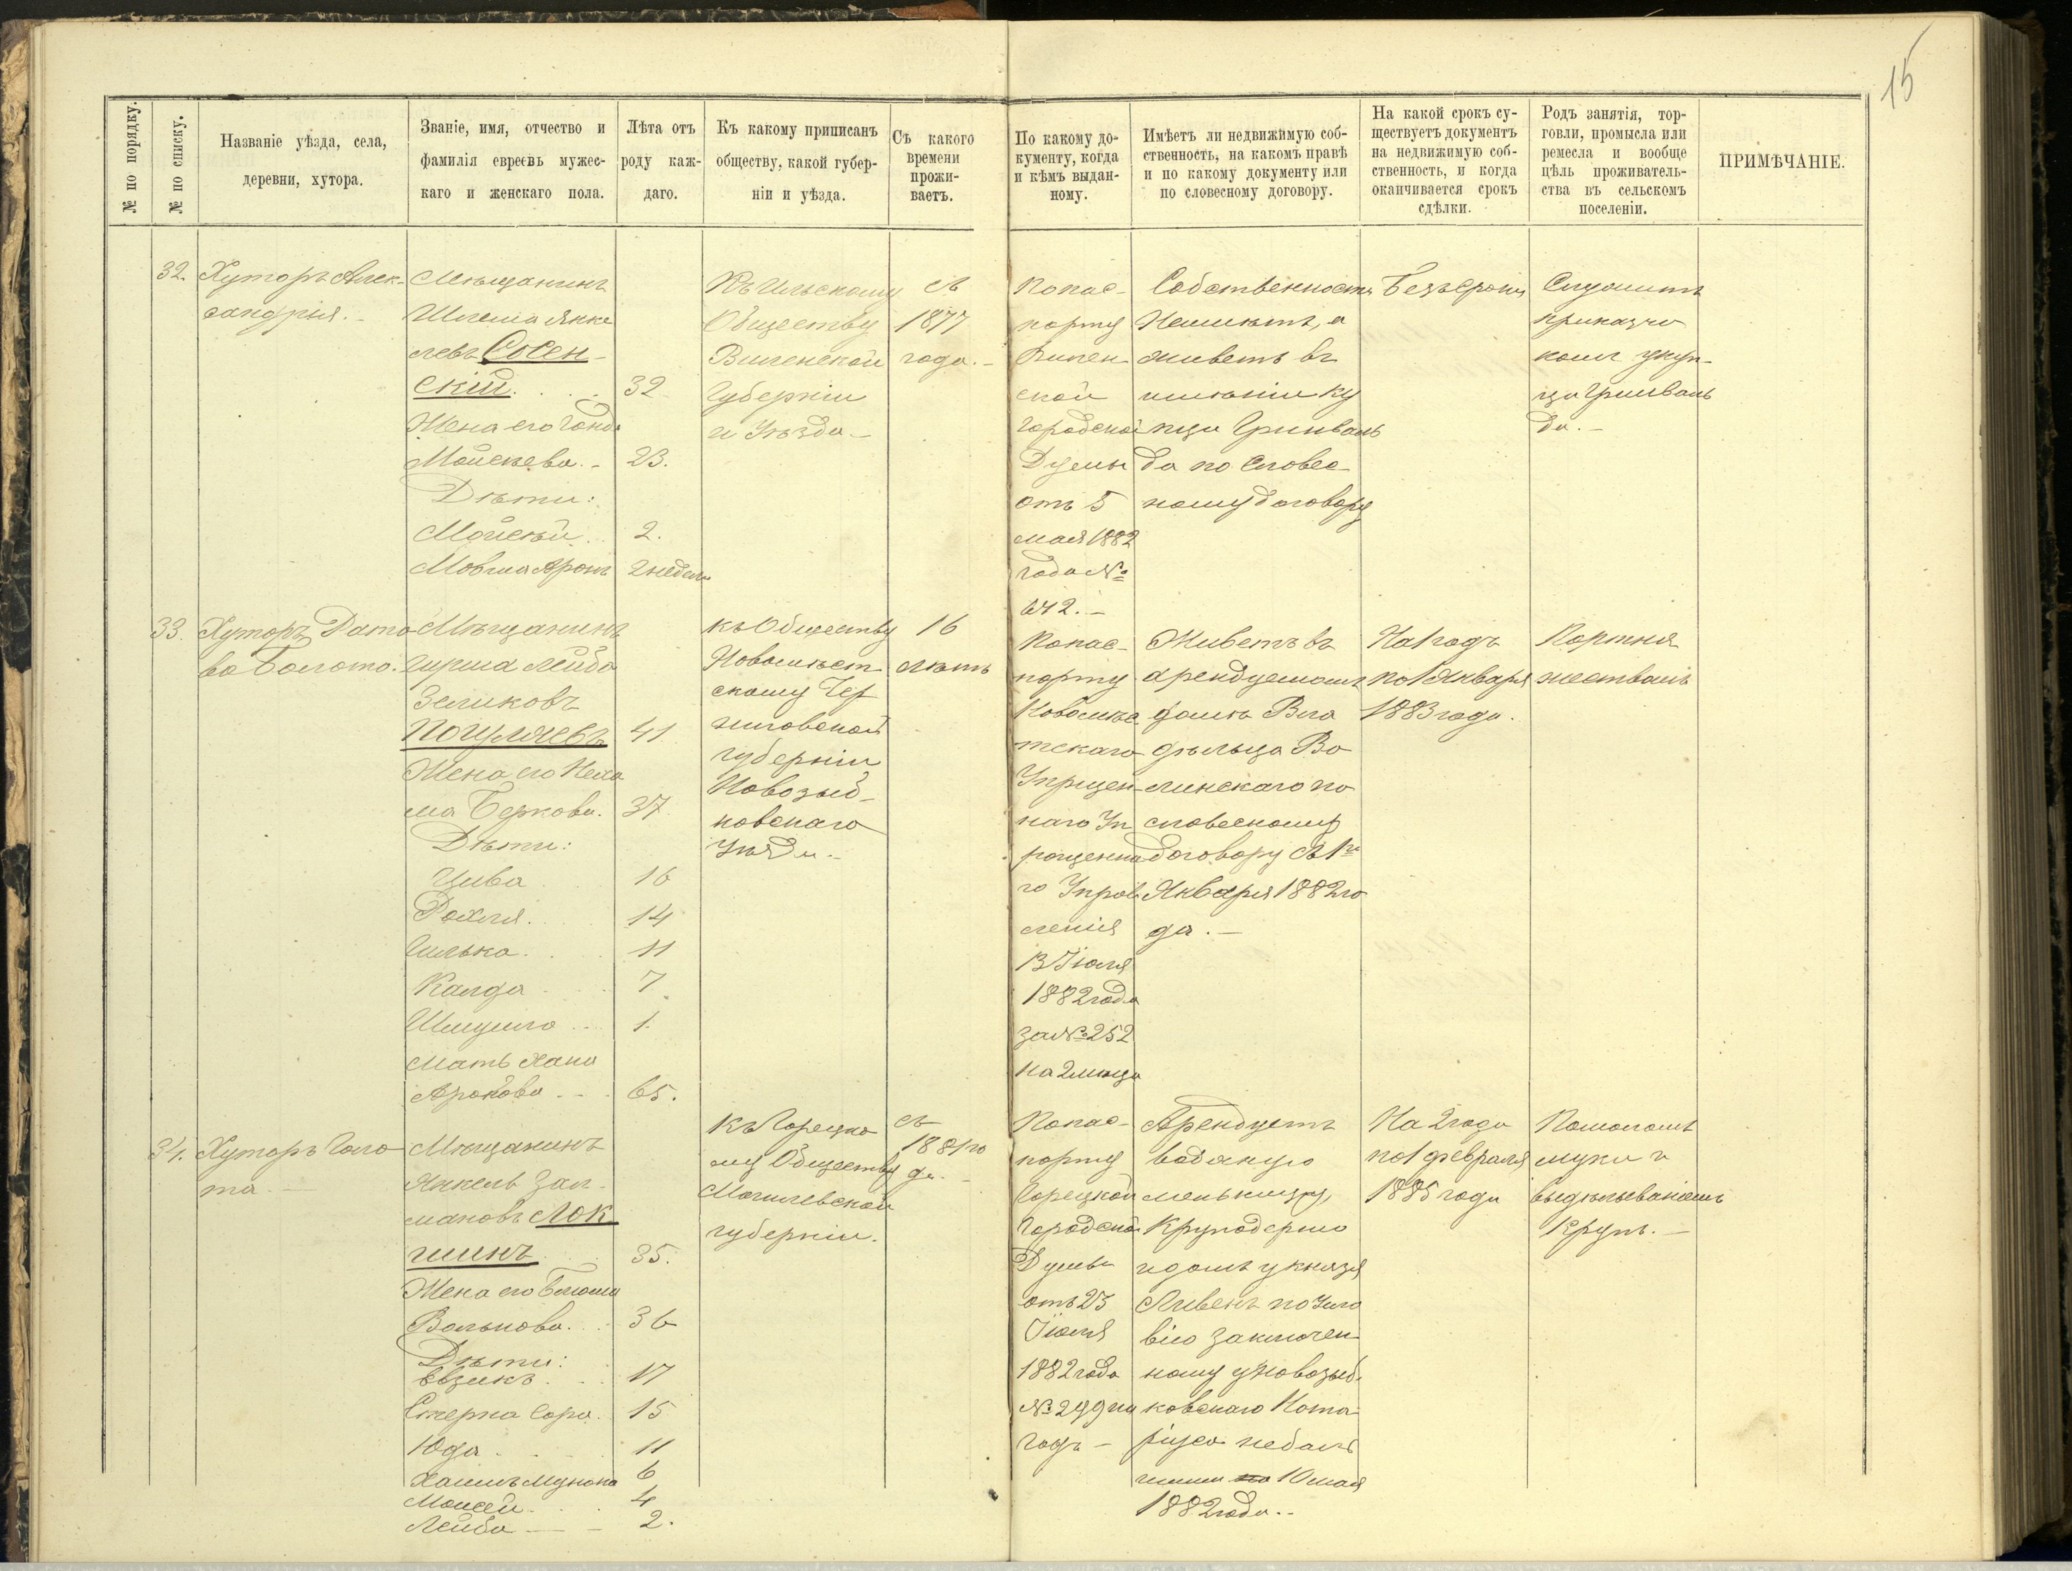 15
№ по порядку.
№ по списку.
Названіе уѣзда, села,
деревни, хутора.
Званіе, имя, отчество и
фамилія евреевъ мужес-
каго и женскаго пола.
Лѣта отъ
роду каж-
даго.
Къ какому приписанъ
обществу, какой губер-
ніи и уѣзда.
Съ какого
времени
прожи-
ваетъ.
По какому до-
кументу, когда
и кѣмъ выдан-
ному.
Имѣетъ ли недвижимую соб-
ственность, на какомъ правѣ
и по какому документу или
по словесному договору.
На какой срокъ су-
ществуетъ документъ
на недвижимую соб-
ственность, и когда
оканчивается срокъ
сдѣлки.
Родъ занятія, тор-
говли, промысла или
ремесла и вообще
цѣль проживатель-
ства въ сельскомъ
поселеніи.
ПРИМѢЧАНІЕ.
32.
Хуторъ Алек-
сандрія.
Мѣщанинъ
Шлема Янке
левъ Сосен-
скій. 32
Жена его
Мойсѣева. - 23.
Дѣти:
Мойсѣй. 2.
Мовша Аронъ 2 недели
Къ Ильскому
Обществу
Виленской
Губерніи
и Уѣзда -
съ
1877
года. -
По пас-
порту
Вилен-
ской
Городской
Думы
отъ 5
мая 1882
года №
642. -
Собственности
Неимѣетъ, а
живетъ въ
имѣніи ку
пца Гринваль
да по словес-
ному договору
Безъ срока
Служитъ
приказчи
комъ у куп-
ца Гринваль
да. -
33.
Хуторъ Дато
во Болото.
Мѣщанинъ
Гирша Лейба
Зеликовъ
Погуляевъ 41
Жена его Неха
ма Беркова. 37
Дѣти:
Цива 16
Рохля. 14
Гилька. 11
Калда 7
Шмуило 1.
Мать Хана
Аронова 65.
къ Обществу
Новомѣст-
скому Чер
ниговской
губерніи
Новозыб-
ковскаго
Уѣзда. -
16
лѣтъ
По пас-
порту
Новомѣс
тскаго
Упрщен-
наго Уп
рощенна
го Управ
ленія
13 Іюля
1882 года
за № 252
на 2 мѣсца
Живетъ въ
арендуемомъ
домѣ Вла
дѣльца Во
линскаго по
словесному
договору съ 1го
Января 1882 го
да. -
На 1 годъ
по 1 Января
1883 года.
Портня
жествомъ
34.
Хуторъ Голо
та. -
Мѣщанинъ
Янкель Зал-
мановъ Лок
шинъ 35.
Жена его Блюма
Вольнова. 36
Дѣти:
Евзикъ. 17
Стерна Сора. 15
Юда. 11
Хаимъ Мунька 6
Моисей. 4
Лейба 2.
къ Горецко
му Обществу
Могилевской
губерніи.
съ
1881 го
да. -
По пас-
порту
Горецкой
Городской
Думы
отъ 23
Іюля
1882 года
№ 299 на
годъ -
Арендуетъ
водяную
меньницу,
Круподерню
и домъ у князя
Ливенъ по усло
вію заключен-
ному у Новозыб-
ковскаго Нота-
ріуса
10 мая
1882 года. -
На 2 года
по 1 февраля
1885 года
Помоломъ
муки и
выдѣлываніемъ
Крупъ. -